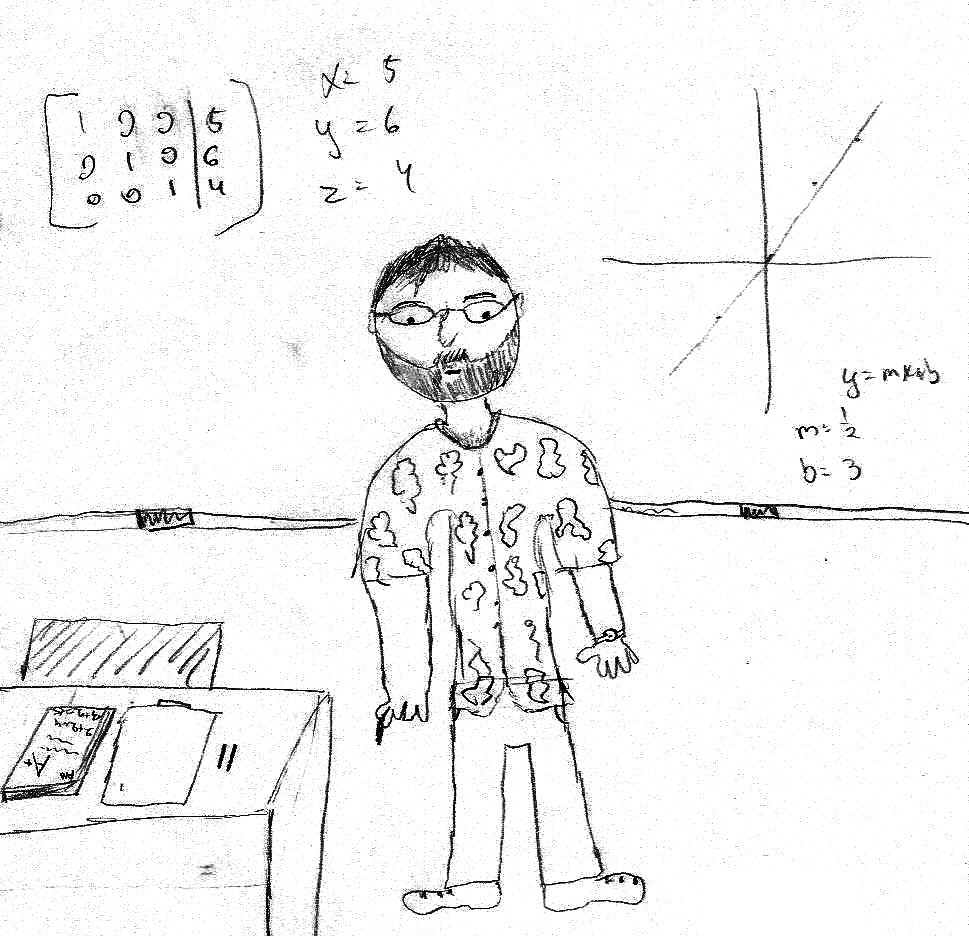 1 0 0 | 5
0 1 0 | 6
0 0 1 | 4
x= 5
y = 6
z = 4
y=mx+b
m= 1/2
b= 3
A+